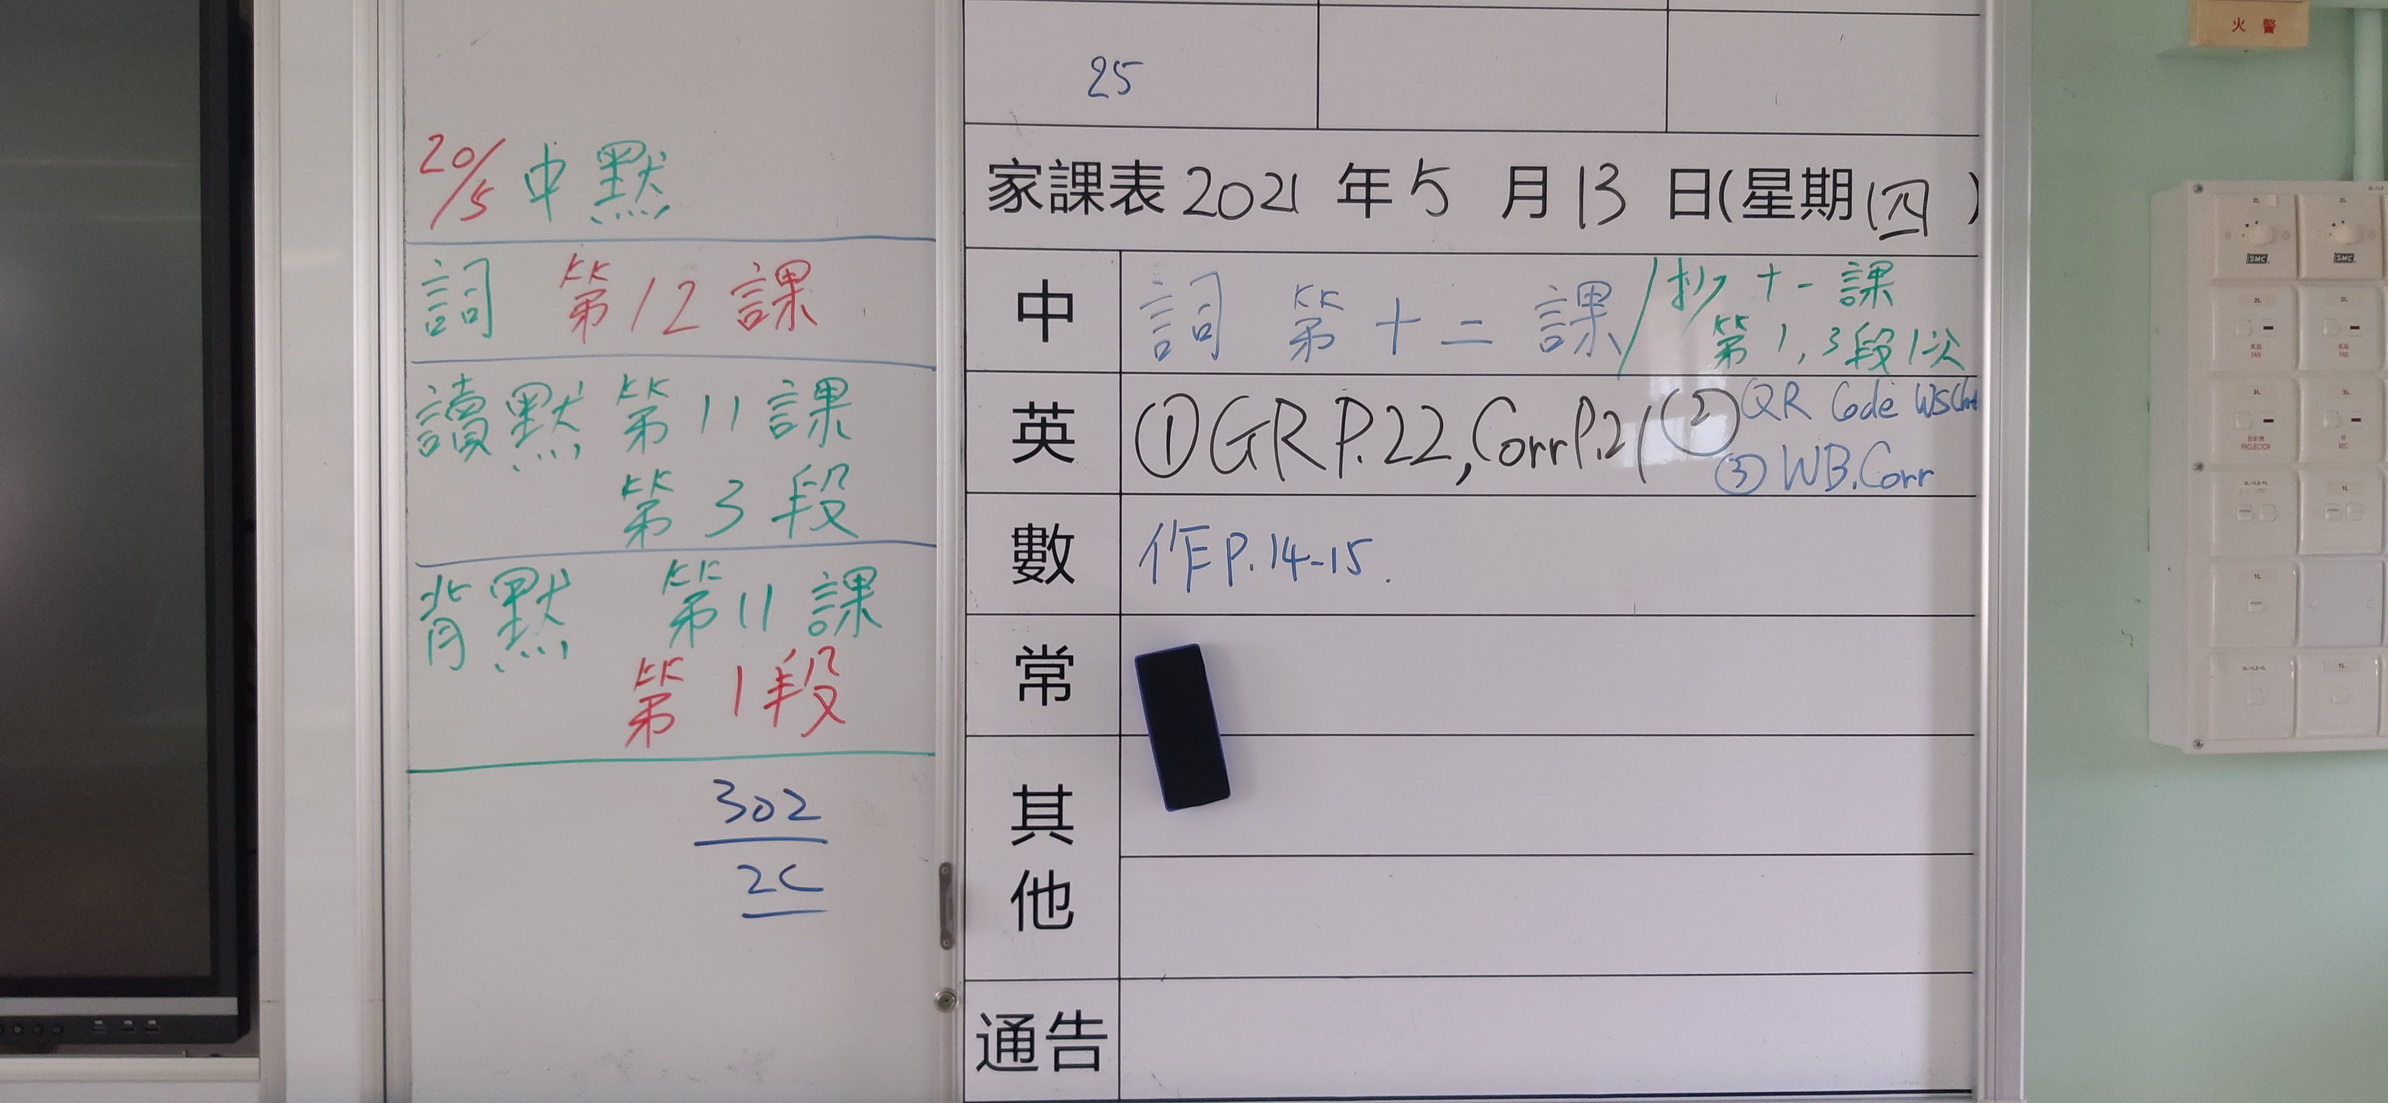 20/5 中默
詞 第12課
讀默 第11課
第3段
背默 第11課
第1段
302
2C
25
家課表 2021 年 5 月 13 日(星期四)
中 詞 第十二課/抄十一課
第1,3段1次
英 ①GR P.22, Corr P.21 ②QR Code WS
③WB.Corr
數 作P.14-15.
常
其他
通告
火警
SMC SMC
FAN FAN
PROJECTOR MIC